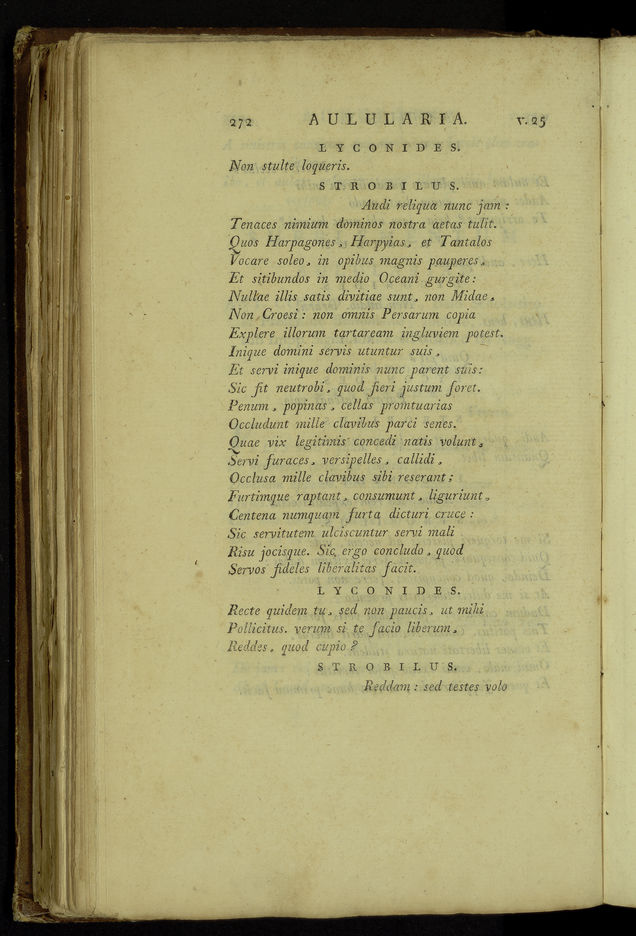 272 AULULARIA. V. 25
LYCONIDES.
Non stulte loqueris.
STROBILUS.
Audi reliqua nunc jam :
Tenaces nimium dominos nostra aetas tulit.
Quos Harpagones, Harpyias, et Tantalos
Vocare soleo, in opibus magnis pauperes,
Et sitibundos in medio Oceani gurgite :
Nullae illis satis divitiae sunt, non Midae,
Non Croesi : non omnis Persarum copia
Explere illorum tartaream ingluviem potest.
Inique domini servis utuntur suis,
Et servi inique dominis nunc parent suis:
Sic fit neutrobi, quod fieri justum foret.
Penum, popinas, cellas promtuarias
Occludunt mille clavibus parci senes.
Quae vix legitimis concedi natis volunt,
Servi furaces, versipelles, callidi,
Occlusa mille clavibus sibi reserant ;
Furtimque raptant, consumunt, liguriunt,
Centena numquam furta dicturi cruce :
Sic servitutem ulciscuntur servi mali
Risu jocisque. Sic, ergo concludo, quod
Servos fideles liberalitas facit.
LYCONIDES.
Recte quidem tu, sed non paucis, ut mihi
Pollicitus. verum si te facio liberum,
Reddes, quod cupio ?
STROBILUS.
Reddam : sed testes volo